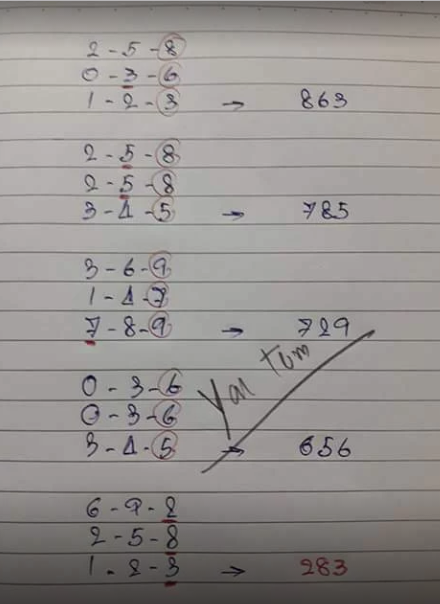 2 - 5 - 8
0 - 3 - 6
1 - 2 - 3 → 863
2 - 5 - 8
2 - 5 - 8
3 - 4 - 5 → 785
3 - 6 - 9
1 - 4 - 7
7 - 8 - 9 → 729
0 - 3 - 6
0 - 3 - 6
3 - 4 - 5 → 656
6 - 9 - 2
2 - 5 - 8
1 - 2 - 3 → 283